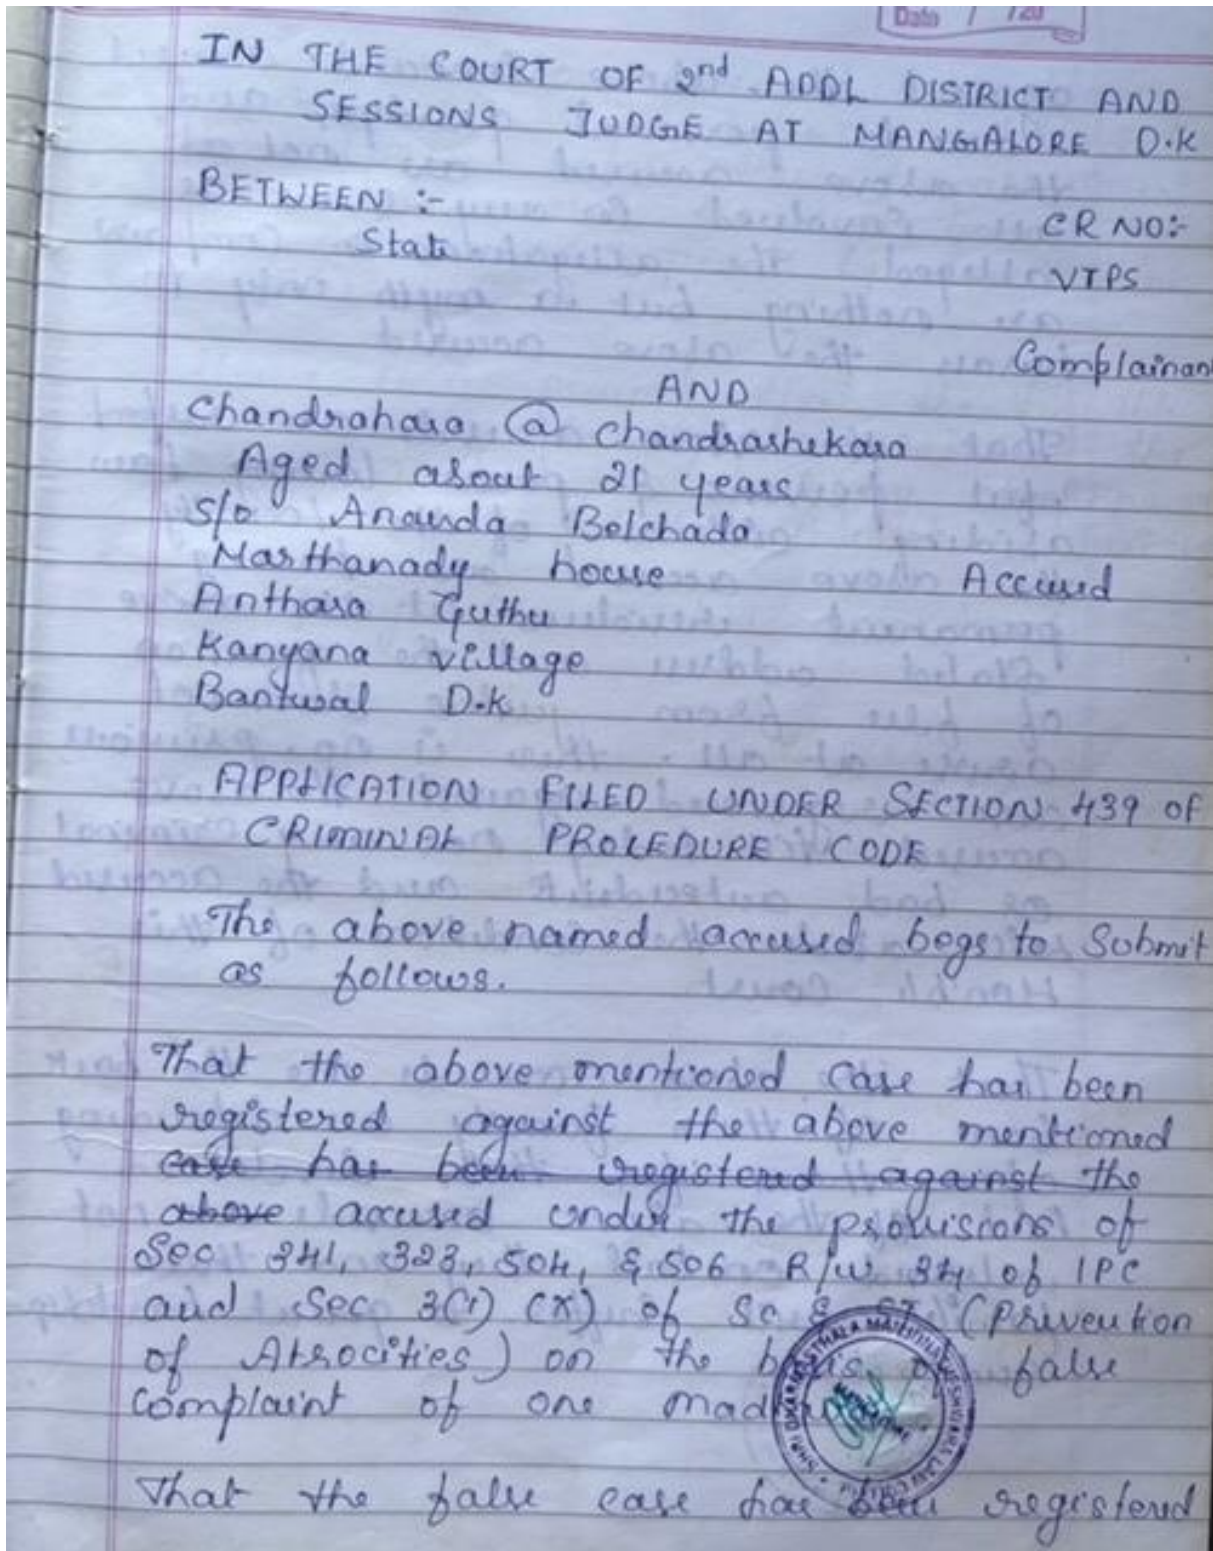 Date / /20
IN THE COURT OF 2nd ADDL DISTRICT AND
SESSIONS JUDGE AT MANGALORE D.K
BETWEEN :-
CR NO:-
State
VTPS
Complainan
AND
Chandrahasa @ Chandrashekara
Aged about 21 years
S/o Ananda Belchada
Marthanady house Accused
Anthara Guthu
Kanyana village
Bantwal D.K
APPLICATION FILED UNDER SECTION 439 OF
CRIMINAL PROCEDURE CODE
The above named accused begs to Submit
as follows.
That the above mentioned case has been
registered against the above mentioned
case has been registered against the
above accused under the provisions of
Sec 341, 323, 504, & 506 R/w 34 of IPC
and Sec 3(1) (x) of SC & ST (Prevention
of Atrocities) on the basis of false
Complaint of one
That the false case has been registered